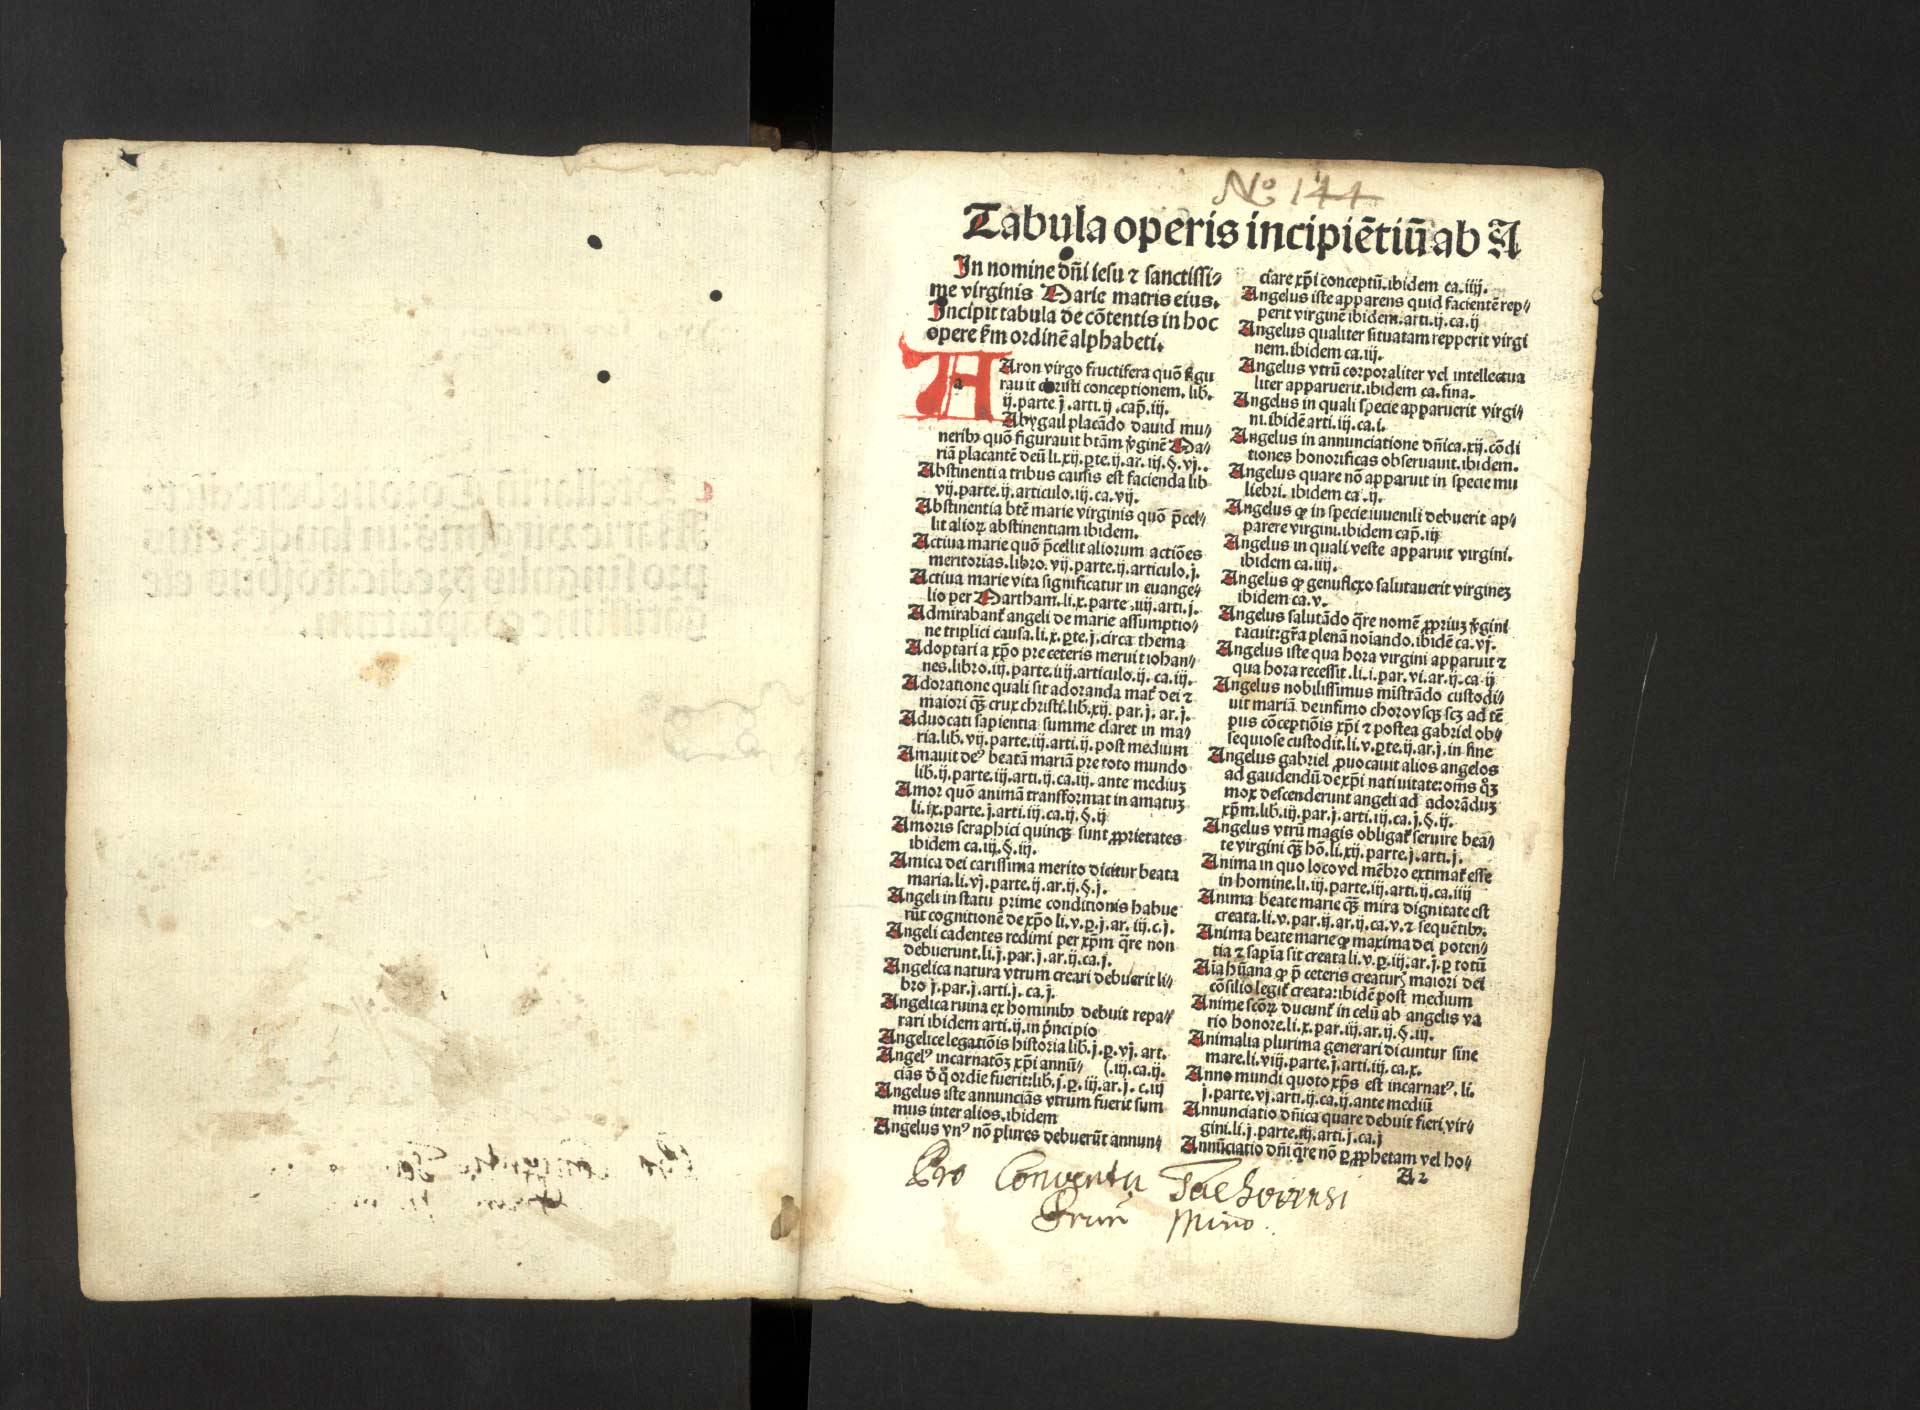 No 144
Tabula operis incipiẽtiũ ab A
In nomine dñi iesu ⁊ sanctissi⸗
me virginis Marie matris eius.
Incipit tabula de cõtentis in hoc
opere ẜm ordinẽ alphabeti.
AAron virgo fructifera quõ figu
rauit christi conceptionem. lib.
ij. parte j. arti. ij. cap̃. iij.
Abygail placãdo dauid mu⸗
neribꝰ quõ figurauit btãm v̾ginẽ Ma⸗
riã placantẽ deũ li. xij. ꝑte. ij. ar. iij. §. vj..
Abstinentia tribus causis est facienda lib
vij. parte. ij. articulo. iij. ca. vij.
Abstinentia btẽ marie virginis quõ p̃cel⸗
lit alioꝝ abstinentiam ibidem.
Actiua marie quõ p̃cellit aliorum actiões
meritorias. libro. vij. parte. ij. articulo. j.
Actiua marie vita significatur in euange⸗
lio per Martham. li. x. parte. iij. arti. j.
Admirabant᷑ angeli de marie assumptio⸗
ne triplici causa. li. x. ꝑte. j. circa thema
Adoptari a xp̃o pre ceteris meruit iohan⸗
nes. libro. iij. parte. iij. articulo. ij. ca. iij.
Adoratione quali sit adoranda mat᷑ dei ⁊
maiori qȝ̃ crux christi. lib. xij. par. j. ar. j.
Aduocati sapientia summe claret in ma⸗
ria. lib. vij. parte. iij. arti. ij. post medium
Amauit deꝰ beatã mariã pre toto mundo
lib. ij. parte. iij. arti. ij. ca. iij. ante mediuȝ
Amor quõ animã transformat in amatuȝ
li. ix. parte. j. arti. iij. ca. ij. §. ij
Amoris seraphici quinqȝ sunt ꝓprietates
ibidem ca. iij. §. iij.
Amica dei carissima merito dicitur beata
maria. li. vj. parte. ij. ar. ij. §. j.
Angeli in statu prime conditionis habue
rũt cognitionẽ de xp̃o li. v. ꝑ. j. ar. iij. c. j.
Angeli cadentes redimi per xp̃m q̃re non
debuerunt. li. j. par. j. ar. ij. ca. j.
Angelica natura vtrum creari debuerit li⸗
bro j. par. j. arti. j. ca. j.
Angelica ruina ex hominibꝰ debuit repa⸗
rari ibidem arti. ij. in p̃ncipio
Angelice legatiõis historia lib. j. ꝑ. vj. art.
Angelꝰ incarnatõȝ xp̃i annũ⸗ (. iij. ca. ij.
ciãs d̾ q̊ ordie fuerit: lib. j. ꝑ. iij. ar. j. c. iij
Angelus iste annunciãs vtrum fuerit sum
mus inter alios. ibidem
Angelus vnꝰ nõ plures debuerũt annun⸗
ciare xp̃i conceptũ. ibidem ca. iiij.
Angelus iste apparens quid facientẽ rep⸗
perit virginẽ ibidem. arti. ij. ca. ij
Angelus qualiter situatam repperit virgi
nem. ibidem ca. iij.
Angelus vtrũ corporaliter vel intellectua
liter apparuerit. ibidem ca. fina.
Angelus in quali specie apparuerit virgi⸗
ni. ibidẽ arti. iij. ca. i.
Angelus in annunciatione dñica. xij. cõdi
tiones honorificas obseruauit. ibidem.
Angelus quare nõ apparuit in specie mu
liebri. ibidem ca. ij.
Angelus ꝙ in specie iuuenili debuerit ap⸗
parere virgini. ibidem cap̃. iij
Angelus in quali veste apparuit virgini.
ibidem ca. iiij.
Angelus ꝙ genuflexo salutauerit virgineȝ
ibidem ca. v.
Angelus salutãdo q̃re nomẽ ꝓpriuȝ v̾gini
tacuit: gr̃a plenã noiando. ibidẽ ca. vj.
Angelus iste qua hora virgini apparuit ⁊
qua hora recessit. li. i. par. vi. ar. ij. ca ij
Angelus nobilissimus mĩstrãdo custodi⸗
uit mariã de infimo choro vsqȝ scȝ ad tẽ
pus cõceptiõis xp̃i ⁊ postea gabriel ob⸗
sequiose custodit. li. v. ꝑte. ij. ar. j. in fine
Angelus gabriel ꝓuocauit alios angelos
ad gaudendũ de xp̃i natiuitate: om̃s q̊ȝ
mox descenderunt angeli ad adorãduȝ
xp̃m. lib. iij. par. j. arti. iij. ca. j. §. ij.
Angelus vtrũ magis obligat᷑ seruire bea⸗
te virgini qȝ̃ hõ. li. xij. parte. j. arti. j.
Anima in quo loco vel mẽbro extimat᷑ esse
in homine. li. iij. parte. iij. arti. ij. ca. iiij
Anima beate marie qȝ̃ mira dignitate est
creata. li. v. par. ij. ar. ij. ca. v. ⁊ sequẽtibꝰ.
Anima beate marie ꝙ maxima dei poten⸗
tia ⁊ sapĩa sit creata li. v. ꝑ. iij. ar. j. ꝑ totũ
Aĩa hũana ꝙ p̃ ceteris creaturꝭ maiori dei
cõsilio legit᷑ creata: ibidẽ post medium
Anime sc̃oꝝ ducunt᷑ in celũ ab angelis va
rio honore. li. x. par. iij. ar. ij. §. iij.
Animalia plurima generari dicuntur sine
mare. li. viij. parte. j. arti. iij. ca. x.
Anno mundi quoto xp̃s est incarnatꝰ. li.
j. parte. vj. arti. ij. ca. ij. ante mediũ
Annunciatio dñica quare debuit fieri vir⸗
gini. li. j. parte. iij. arti. j. ca. j
Annũciatio dñi q̃re nõ ꝑ ꝓphetam vel ho⸗
A 2
Pro Conventu
Mino.